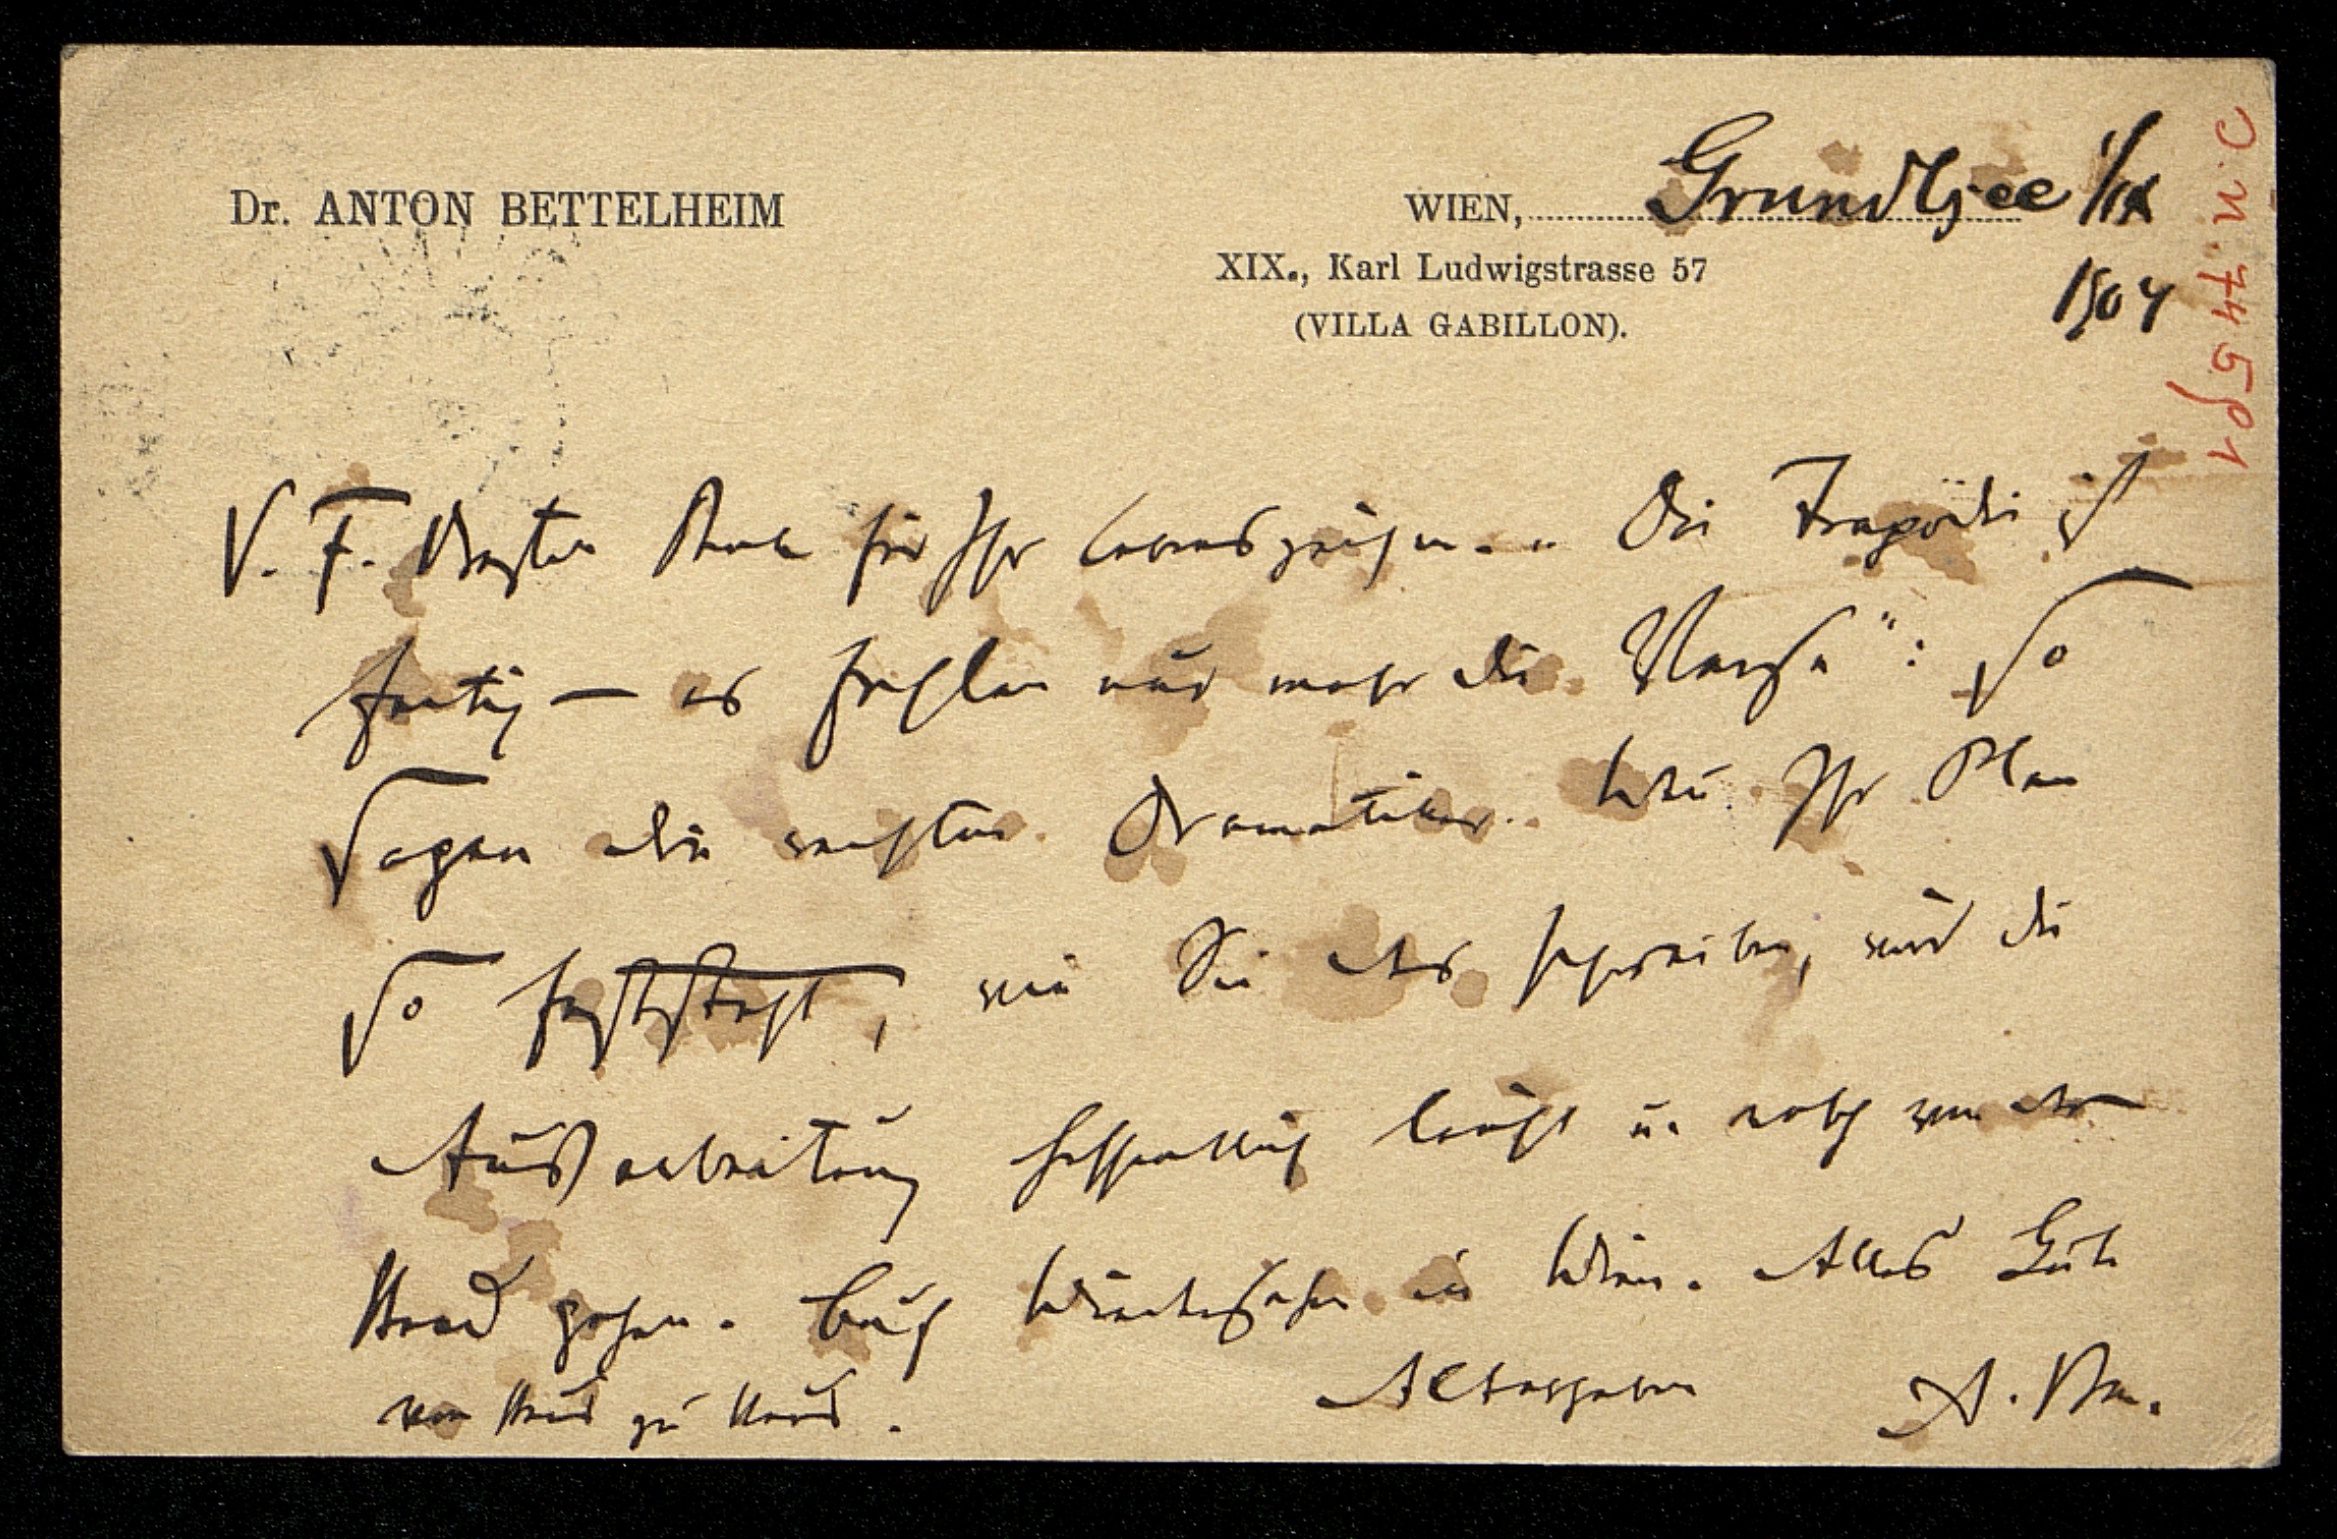 Dr. ANTON BETTELHEIM
WIEN, Grundlsee 1/IX
XIX., Karl Ludwigstrasse 57
1904
(VILLA GABILLON).
V. F. Besten Dank für Ihr Lebenszeichen. „Die Tragödie ist
fertig — es fehlen nur mehr die Verse": So
sagen die rechten Dramatiker. Wenn Ihr Plan
so feststeht, wie Sie das schreiben, wird die
Ausarbeitung hoffentlich leicht u. rasch von der
Hand gehen. Auf Wiedersehen in Wien. Alles Gute
von Haus zu Haus. Altergeben A. Bm.